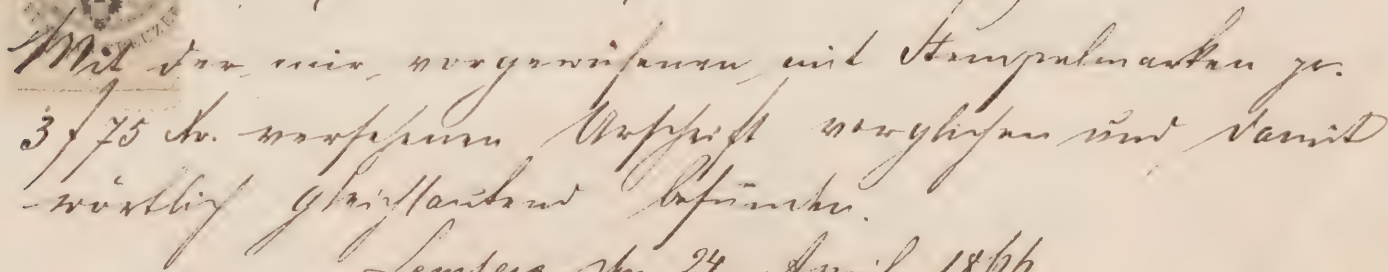 Mit der mir vorgewiesenen mit Stempelmarken pr.
3 f 75 Kr. versehenen Urschrift verglichen und damit
wörtlich gleichlautend befunden.
Lemberg den 24 April 1866